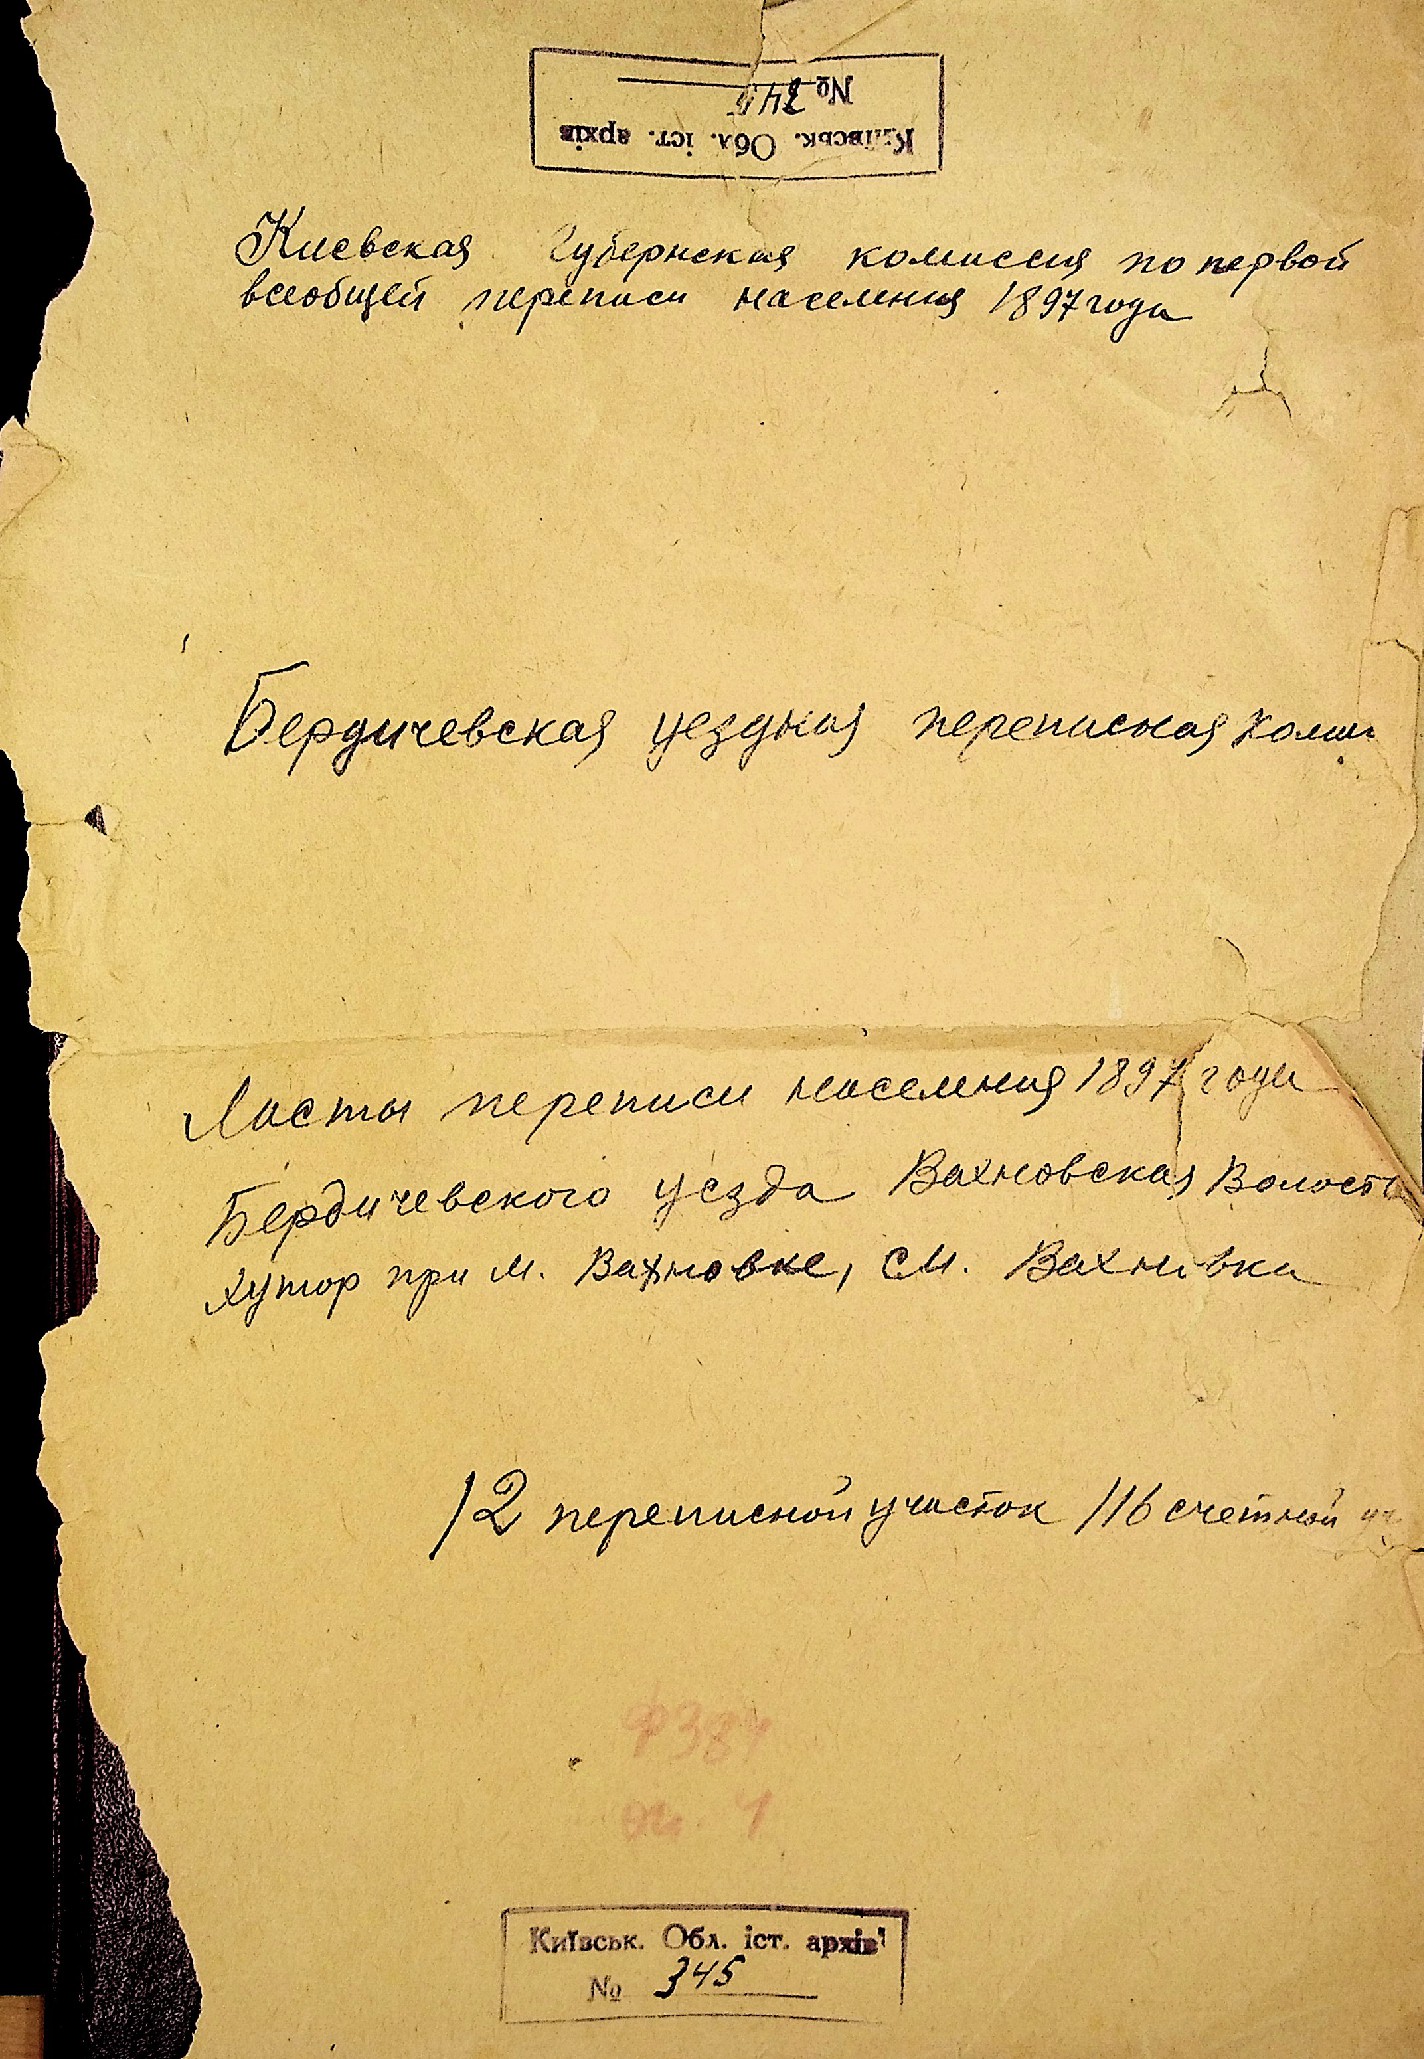 Київськ. Обл. іст. архів
№ 345
Киевская Губернская комиссия по первой
всеобщей переписи населения 1897 года
Бердичевская уездная переписная коми
Листы переписи населения 1897 года
Бердичевского уезда Вахновская Волость
Хутор при м. Вахновке, см. Вахновка
12 переписной участок 116 счетной уч
Ф 384
оп. 4
Київськ. Обл. іст. архів
№ 345